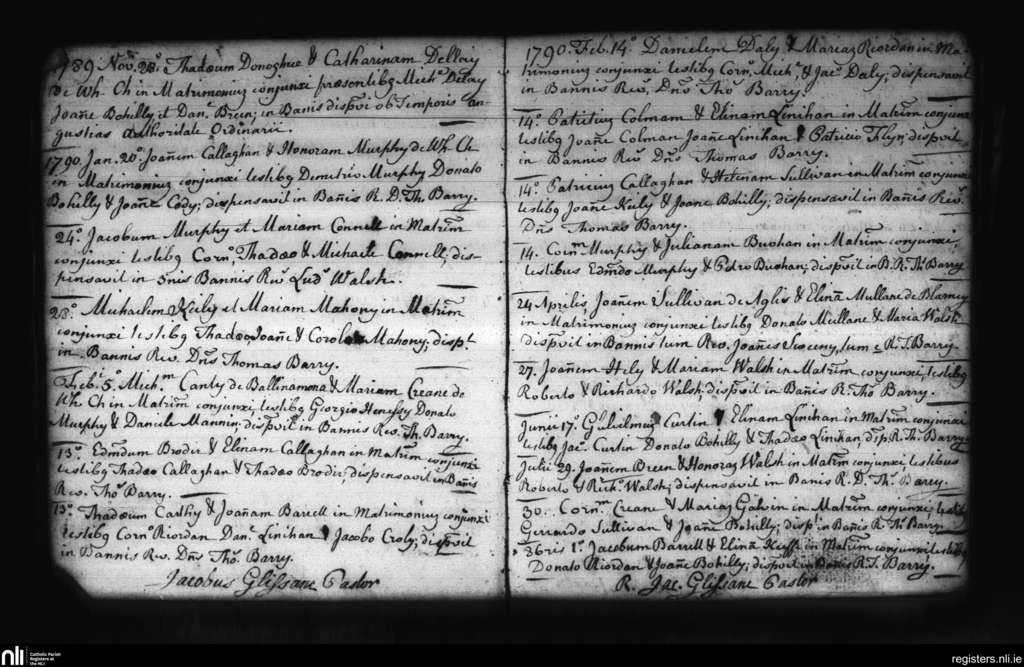 1789 Nov. 28° Thadæum Donoghue & Catharinam
de Wh. Ch in Matrimonium conjunxi præsentibg Mich°
Joañe Bohilly et Dan. Breen; in Banis dispvi ob temporis an-
gustias authoritate Ordinarii.
1790. Jan. 20° Joañem Callaghan & Honoram Murphy de Wh Ch
in Matrimoniuz conjunxi testibg Demetrio Murphy Donato
Bohilly & Joañe Cody; dispensavit in Bañis R. D. Ths Barry.
24° Jacobum Murphy et Mariam Connell in Matrim
conjunxi testibg Corn°, Thadæo & Michaele Connell; dis-
pensavit in 3nis Bannis Rev Lud Walsh.
28° Michaelem Keily et Mariam Mahony in Matrim
conjunxi testibg Thadæo, Joañe & Corolo Mahony; dispt
in Bannis Rev. Dñs Thomas Barry.
Feb. 5° Mich.m Canty de Ballinamona & Mariam Creane de
Wh Ch in Matrim conjunxi, testibg Georgio Donato
Murphy & Daniele Mannin; dispvit in Bannis Rev. Th. Barry.
13° Edmdum Broder & Elenam Callaghan in Matrim conjunxi
testibg Thadæo Callaghan & Thadæo Broder; dispensavit in Bañis
Rev. Tho° Barry.
13° Thadæum Carthy & Joañam Barrett in Matrimoniuz conjunxi
testibg Corn° Riordan Dan. Linihan & Jacobo Croly; dispvit
in Bannis Rev. Dñs Tho. Barry.
Jacobus Glissane Pastor
1790. Feb. 14° Danielem Daly & Mariaz Riordan in Ma-
trimoniuz conjunxi testibg Corn° Mich° & Jac° Daly; dispensavit
in Bannis Rev. Dñs Tho° Barry.
14° Patritius Colmam & Elinam Linihan in Matrim conjunxi
testibg Joañe Colman Joañe Linihan & Patricio Flyn; dispvit
in Bannis Rev Dñs Thomas Barry.
14° Patricius Callaghan & Helenam Sullivan in Matrim conjunxi
testibg Joañe & Joane Bohilly; dispensavit in Bañis Rev.
Dñs Thomas Barry.
14. Corn.m Murphy & Julianam Buohan in Matrim conjunxi;
testibus Edmdo Murphy & Petro Buohan; dispvit in B. R. Ths Barry
24 Aprilis, Joañem Sullivan de Aglis & Elinã Mullane de Blarney
in Matrimoniuz conjunxi testibg Donato Mullane & Maria Walsh
dispvit in Bannis tum Rev. Joañes Sweeny, tum e R. T. Barry.
27. Joañem Hely & Mariam Walsh in Matrim conjunxi, testibg
Roberto & Richardo Walsh; dispvit in Bañis R. Tho Barry.
Junii 17° Gulielmuz Curtin & Elenam Linihan in Matrim conjunxi
testibg Jac. Curtin Donato Bohilly & Thadæo Linihan, disp R. Th. Barry
Julii 29. Joañem Breen & Honoraz Walsh in Matrim conjunxi, testibus
Roberto & Rich°. Walsh; dispensavit in Banis R. D. Th. Barry.
30. Corn. Creane & Mariaz in Matrim conjunxi testibg
Gerardo Sullivan & Joañe Bohilly; disp in Bañis R. Th. Barry
8bris 1° Jacobum Barrett & Elinã Keiffe in Matrim conjunxit testibg
Donato Riordan & Joañe Bohilly; dispvit in Bañis R. T. Barry.
R. Jac. Glissane Pastor
nli
Catholic Parish
Registers at
the NLI
registers.nli.ie